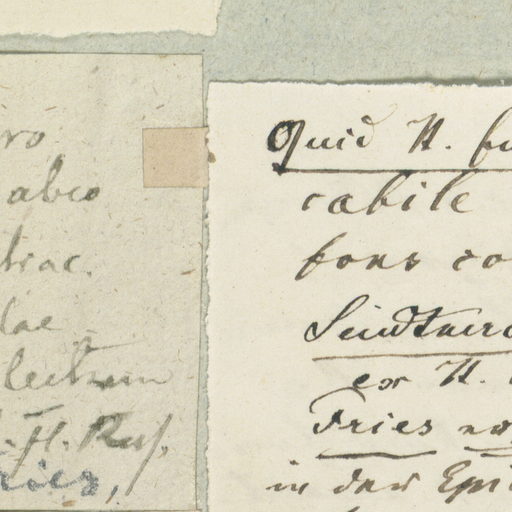 ro
abeo
triac.
lae
lectum
Fl. Ros.
ries,
Quid H. fu
cabile
fons co
Sendtner
ex H.
Fries
in der Epi